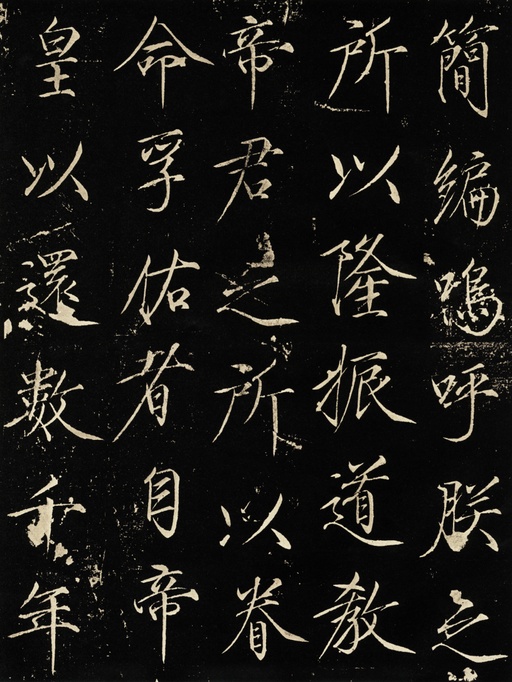 簡編嗚呼朕之
所以隆振道教
帝君之所以眷
命孚佑者自帝
皇以還數千年